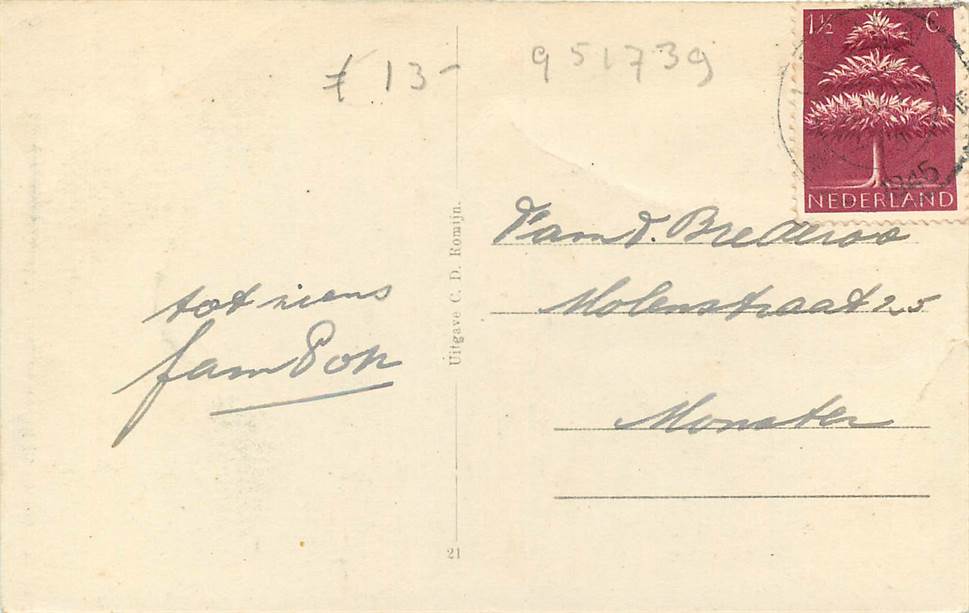 ƒ 13-
951739
1½ C
NEDERLAND
1945
Uitgave C. D. Romijn.
21
tot ziens
fam Pop
Fam d. Brederoo
Molenstraat 25
Monster